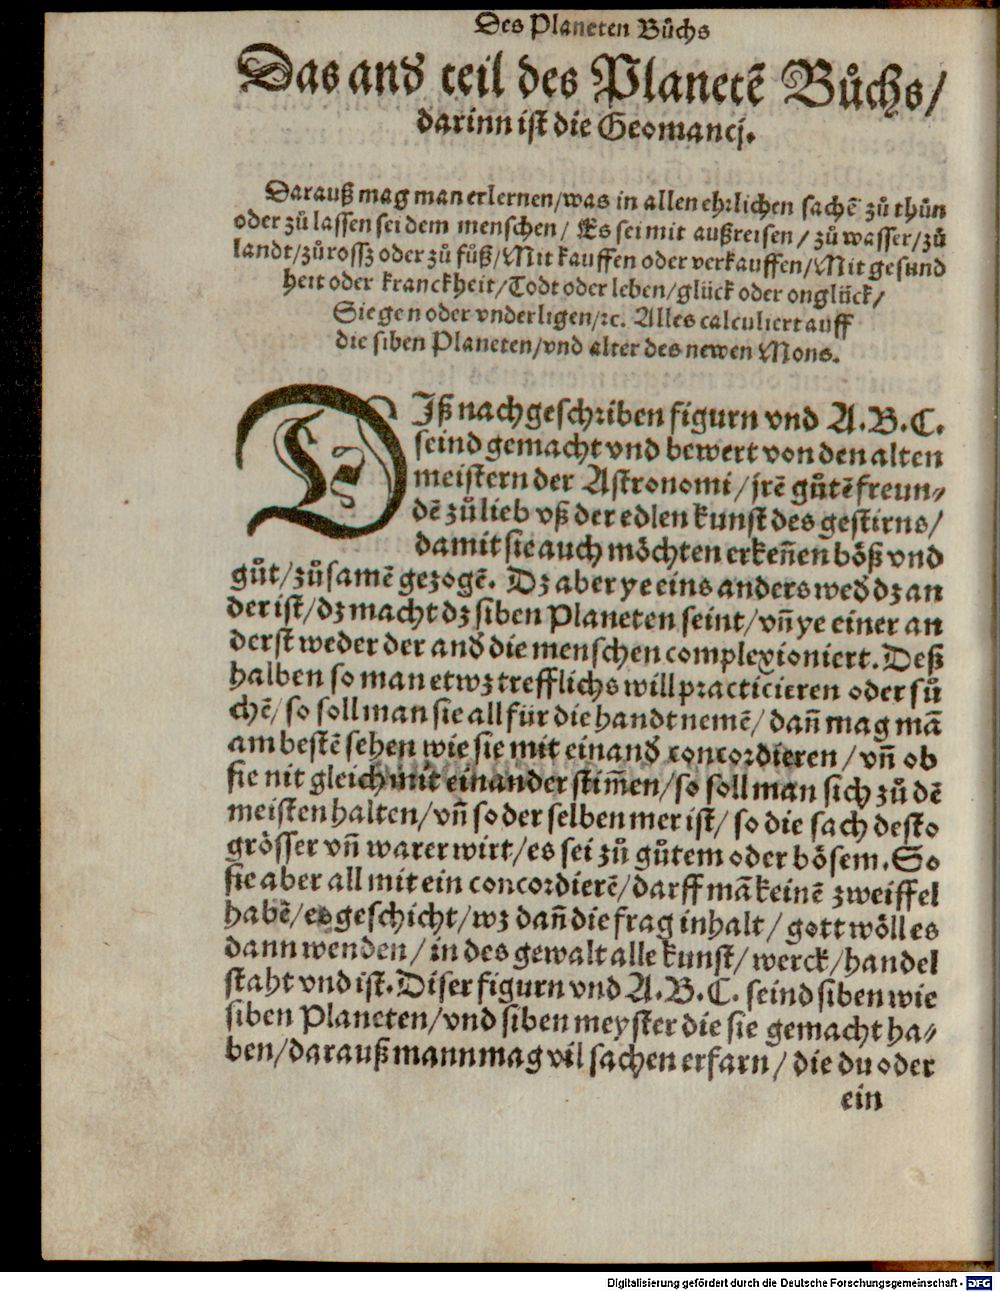 Des Planeten Bůchs
Das and̕ teil des Planetē Bůchs/
darinn ist die Geomancj.
Darauß mag man erlernen/was in allen ehrlichen sachē zů thůn
oder zů lassen sei dem menschen/ Es sei mit außreisen/ zů wasser/zů
landt/zů rossz oder zů fůß/Mit kauffen oder verkauffen/Mit gesund
heit oder kranckheit/Todt oder leben/glück oder onglück/
Siegen oder vnderligen/ꝛc. Alles calculiert auff
die siben Planeten/vnd alter des newen Mons.
DIß nachgeschriben figurn vnd A.B.C.
seind gemacht vnd bewert von den alten
meistern der Astronomi/jrē gůtē freun⸗
dē zů lieb vß der edlen kunst des gestirns/
damit sie auch möchten erkeñen böß vnd
gůt/zůsamē gezogē. Dz aber ye eins anders wed̕ dz an
der ist/dz macht dz siben Planeten seint/vñ ye einer an
derst weder der and̕ die menschen complexioniert. Deß
halben so man etwz trefflichs will practicieren oder sů
chē/so soll man sie all für die handt nemē/dañ mag mā
am bestē sehen wie sie mit einand̕ concordieren/vñ ob
sie nit gleich mit einander stim̄en/so soll man sich zů dē
meisten halten/vñ so der selben mer ist/so die sach desto
grösser vñ warer wirt/es sei zů gůtem oder bösem. So
sie aber all mit ein concordierē/darff mā keinē zweiffel
habē/es geschicht/wz dañ die frag inhalt/ gott wöll es
dann wenden/in des gewalt alle kunst/werck/handel
staht vnd ist. Diser figurn vnd A.B.C. seind siben wie
siben Planeten/vnd siben meyster die sie gemacht ha⸗
ben/darauß mann mag vil sachen erfarn/die du oder
ein
Digitalisierung gefördert durch die Deutsche Forschungsgemeinschaft - DFG